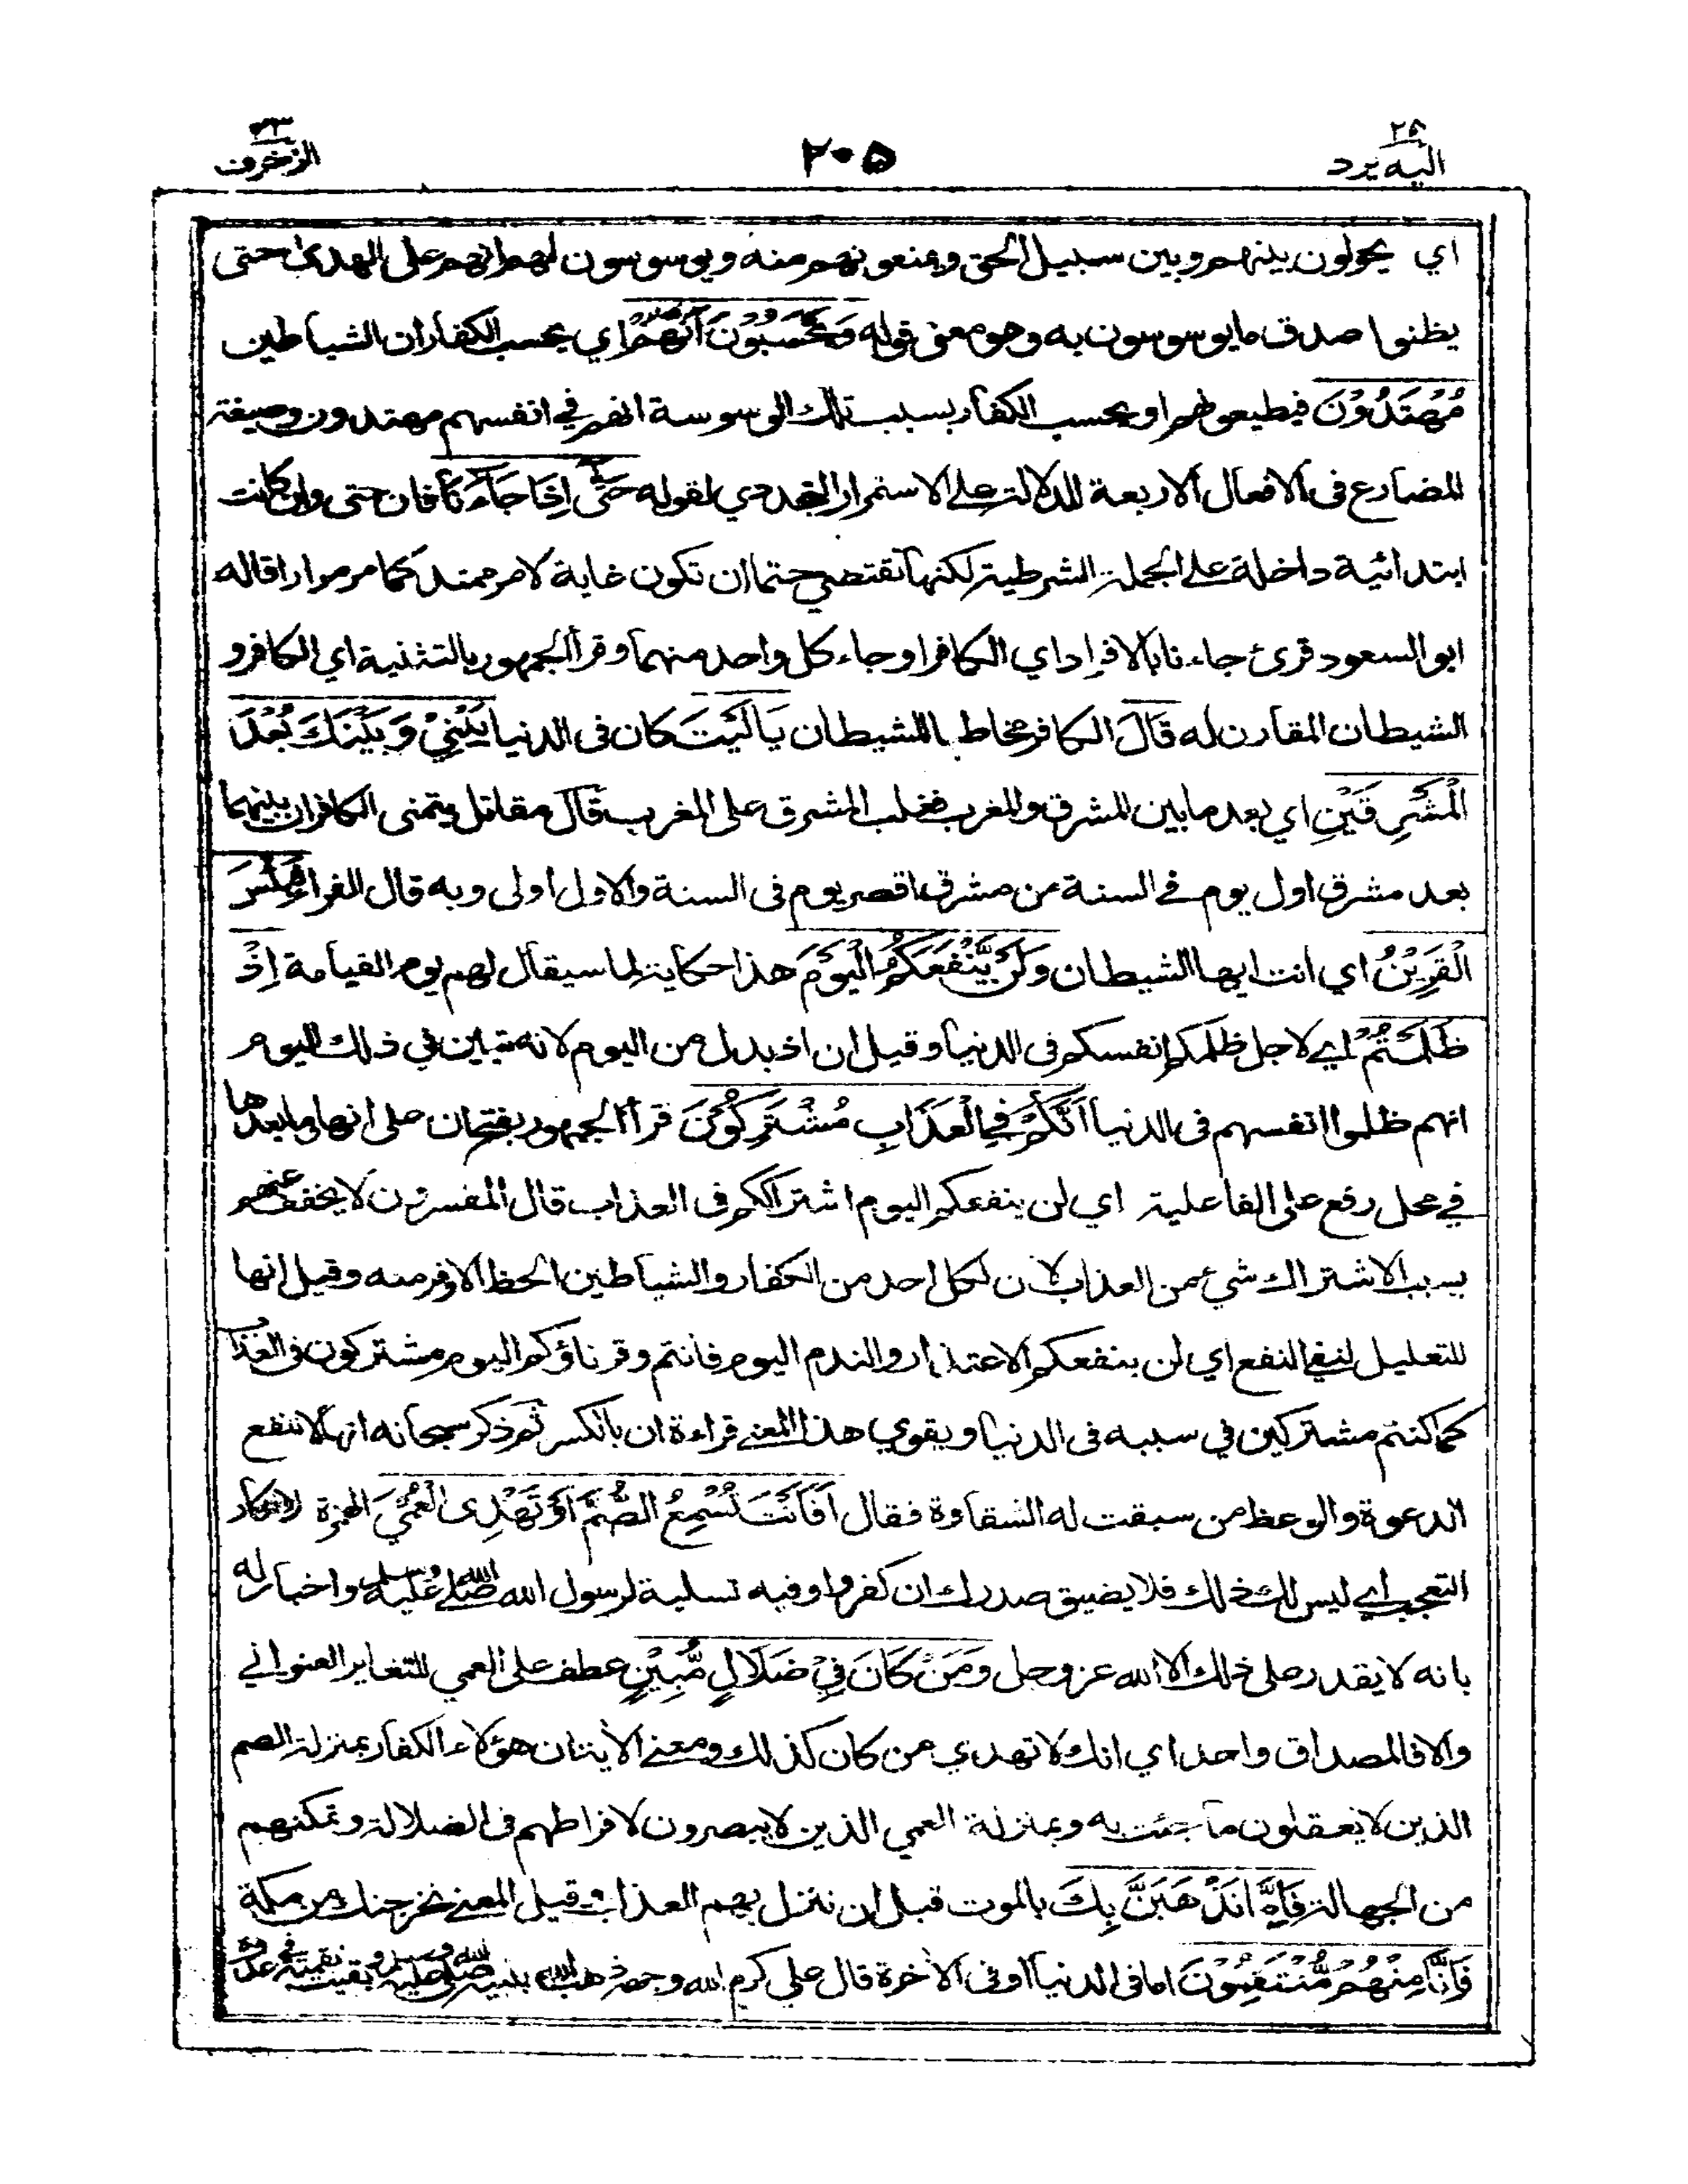 اليه يرد ٢٥
٢٠٥
الزخرف ٤٣
اي يحولون بينهم وبين سبيل الحق ويمنعونهم منه ويوسوسون لهم انهم على الهدى حتى
يظنوا صدق ما يوسوسون به وهو معنى قوله وَيَحْسَبُوْنَ اَنَّهُمْ اي يحسب الكفار ان الشياطين
مُهْتَدُوْنَ فيطيعونهم او يحسب الكفار بسبب تلك الوسوسة انهم في انفسهم مهتدون وصيغة
المضارع في الافعال الاربعة للدلالة على الاستمرار التجددي لقوله حَتّٰى اِذَا جَاءَنَا فان حتى وان كانت
ابتدائية داخلة على الجملة الشرطية لكنها تقتضي حتما ان تكون غاية لامر ممتد كما مر مرارا قاله
ابو السعود قرئ جاءنا بالافراد اي الكافر او جاء كل واحد منهما وقرأ الجمهور بالتثنية اي الكافر و
الشيطان المقارن له قَالَ الكافر مخاطبا للشيطان يَا لَيْتَ كان في الدنيا بَيْنِيْ وَبَيْنَكَ بُعْدَ
الْمَشْرِقَيْنِ اي بعد ما بين المشرق والمغرب فغلب المشرق على المغرب قال مقاتل يتمنى الكافر ان بينهما
بعد مشرق اول يوم في السنة من مشرق اقصر يوم في السنة والاول اولى وبه قال الفراء فَبِئْسَ
الْقَرِيْنُ اي انت ايها الشيطان وَلَنْ يَّنْفَعَكُمُ الْيَوْمَ هذا حكاية لما سيقال لهم يوم القيامة اِذْ
ظَلَمْتُمْ اي لاجل ظلمكم انفسكم في الدنيا وقيل ان اذ بدل من اليوم لانه تبين في ذلك اليوم
انهم ظلموا انفسهم في الدنيا اَنَّكُمْ فِي الْعَذَابِ مُشْتَرِكُوْنَ قرأ الجمهور بفتح ان على انها وما بعدها
في محل رفع على الفاعلية اي لن ينفعكم اليوم اشتراككم في العذاب قال المفسرون لا يخفف عنهم
بسبب الاشتراك شيء من العذاب لان لكل احد من الكفار والشياطين الحظ الاوفر منه وقيل انها
للتعليل لنفي النفع اي لن ينفعكم الاعتذار والندم اليوم فانتم وقرناؤكم اليوم مشتركون في العذاب
كما كنتم مشتركين في سببه في الدنيا ويقوي هذا المعنى قراءة ان بالكسر ثم ذكر سبحانه انها لا تنفع
الدعوة والوعظ من سبقت له الشقاوة فقال اَفَاَنْتَ تُسْمِعُ الصُّمَّ اَوْ تَهْدِى الْعُمْيَ الهمزة لانكار
التعجب اي ليس لك ذلك فلا يضيق صدرك ان كفروا وفيه تسلية لرسول الله صلى الله عليه وسلم واخبار له
بانه لا يقدر على ذلك الا الله عز وجل وَمَنْ كَانَ فِيْ ضَلَالٍ مُّبِيْنٍ عطف على العمي للتغاير العنواني
والا فالمصداق واحد اي انك لا تهدي من كان كذلك ومعنى الاية ان هؤلاء الكفار بمنزلة الصم
الذين لا يعقلون ما جئت به وبمنزلة العمي الذين لا يبصرون لافراطهم في الضلالة وتمكنهم
من الجهالة فَاِمَّا نَذْهَبَنَّ بِكَ بالموت قبل ان ننزل بهم العذاب وقيل المعنى نخرجنك من مكة
فَاِنَّا مِنْهُمْ مُّنْتَقِمُوْنَ اما في الدنيا او في الاخرة قال علي كرم الله وجهه ذهب الله بنبيه صلى الله عليه وسلم وبقيت نقمته في عدوه